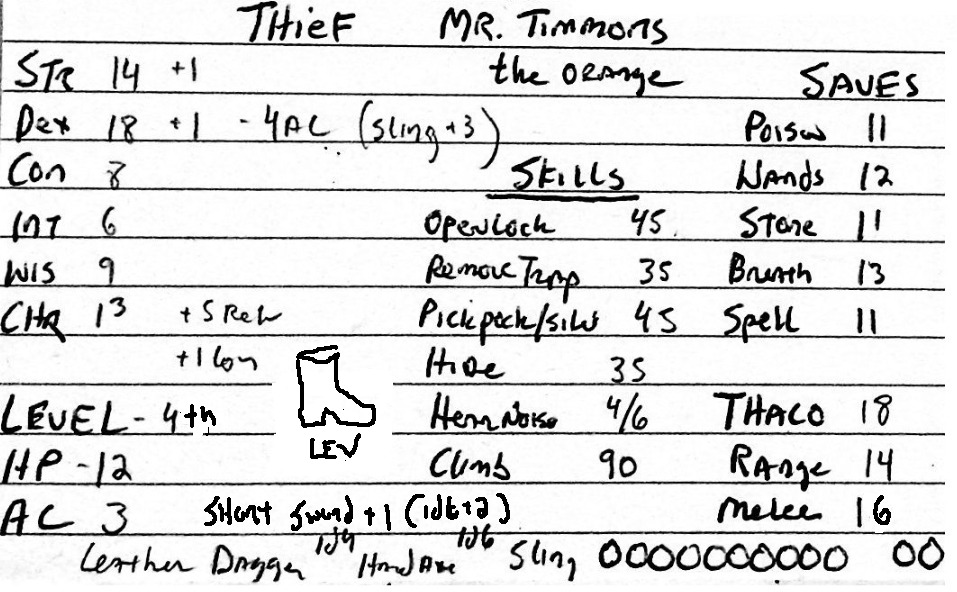 THieF MR. Timmons
STR 14 +1 the ORange SAVES
Dex 18 +1 -4AC (Sling +3) Poison 11
Con 8 SKills Wands 12
INT 6 Openlock 45 Stone 11
WIS 9 Remove Trap 35 Breath 13
CHR 13 +5 Pickpock/ 45 Spell 11
+1 Hide 35
LEVEL - 4th LEV HearNoise 4/6 THACO 18
HP - 12 Climb 90 Range 14
AC 3 Short Sword +1 (1d6+2) melee 16
Leather Dagger 1d4 Hand Axe 1d6 Sling OOOOOOOOOO OO